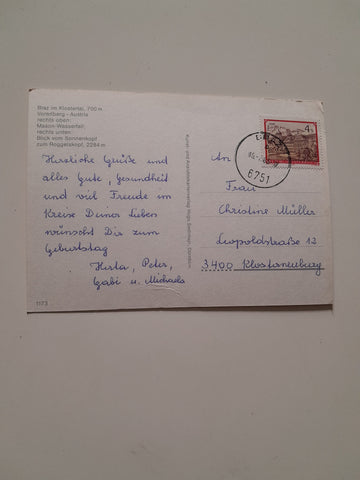 Braz im Klostertal, 700 m
Vorarlberg - Austria
rechts oben:
Mason-Wasserfall;
rechts unten:
Blick vom Sonnenkopf
zum Roggelskopf, 2284 m
Herzliche Grüße und
alles Gute, Gesundheit
und viel Freude im
Kreise Deiner Lieben
wünscht Dir zum
Geburtstag
Herta, Peter,
Gabi u. Michaela
1173
Kunst- und Ansichtskartenverlag
Dornbirn
4
6751
An
Frau
Christine Müller
Leopoldstraße 12
3400 Klosterneuburg